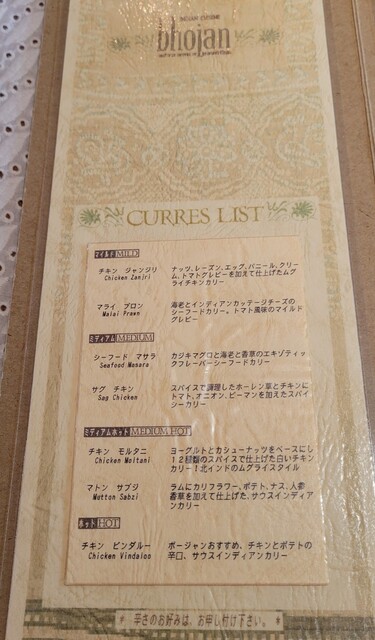 INDIAN CUISINE
bhojan
CURRES LIST
マイルド MILD
チキン ジャンジリ
Chicken Zanjri
ナッツ、レーズン、エッグ、パニール、クリー
ム、トマトグレビーを加えて仕上げたムグ
ライチキンカリー
マライ プロン
Malai Prawn
海老とインディアンカッテージチーズの
シーフードカリー。トマト風味のマイルド
グレビー
ミディアム MEDIUM
シーフード マサラ
Seafood Masara
カジキマグロと海老と香草のエキゾティッ
クフレーバーシーフードカリー
サグ チキン
Sag Chicken
スパイスで調理したホーレン草とチキンに
トマト、オニオン、ピーマンを加えたスパイ
シーカリー
ミディアムホット MEDIUM HOT
チキン モルタニ
Chicken Moltani
ヨーグルトとカシューナッツをベースにし
12種類のスパイスで仕上げた白いチキン
カリー!北インドのムグライスタイル
マトン サブジ
Mutton Sabzi
ラムにカリフラワー、ポテト、ナス、人参
香草を加えて仕上げた、サウスインディア
ンカリー
ホット HOT
チキン ビンダルー
Chicken Vindaloo
ボージャンおすすめ、チキンとポテトの
辛口、サウスインディアンカリー
* 辛さのお好みは、お申し付け下さい。 *